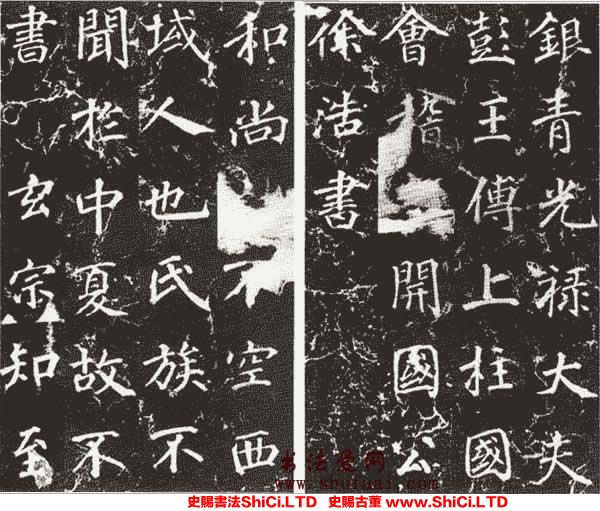 銀青光禄大夫
彭王傅上柱國
會稽開國公
徐浩書
和尚不空西
域人也氏族不
聞於中夏故不
書玄宗知至
书法爱网
www.shufaai.com
史賜書法ShiCi.LTD 史賜古董 www.ShiCi.LTD